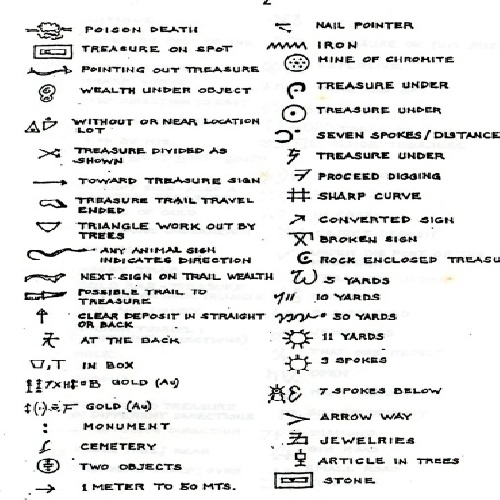 2
POISON DEATH
TREASURE ON SPOT
POINTING OUT TREASURE
WEALTH UNDER OBJECT
WITHOUT OR NEAR LOCATION
LOT
TREASURE DIVIDED AS
SHOWN
TOWARD TREASURE SIGN
TREASURE TRAIL TRAVEL
ENDED
TRIANGLE WORK OUT BY
TREES
ANY ANIMAL SIGN
INDICATES DIRECTION
NEXT SIGN ON TRAIL WEALTH
POSSIBLE TRAIL TO
TREASURE
CLEAR DEPOSIT IN STRAIGHT
OR BACK
AT THE BACK
IN BOX
GOLD (AU)
GOLD (AU)
MONUMENT
CEMETERY
TWO OBJECTS
1 METER TO 50 MTS.
NAIL POINTER
IRON
MINE OF CHROMITE
TREASURE UNDER
TREASURE UNDER
SEVEN SPOKES/DISTANCE
TREASURE UNDER
PROCEED DIGGING
SHARP CURVE
CONVERTED SIGN
BROKEN SIGN
ROCK ENCLOSED TREASU
5 YARDS
10 YARDS
30 YARDS
11 YARDS
9 SPOKES
7 SPOKES BELOW
ARROW WAY
JEWELRIES
ARTICLE IN TREES
STONE